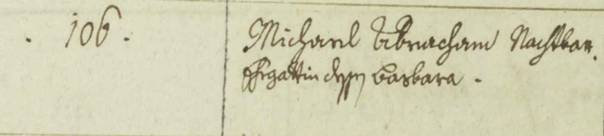 . 106 .
Michael Abracham Nachtbar.
Ehegattin dessen Barbara .